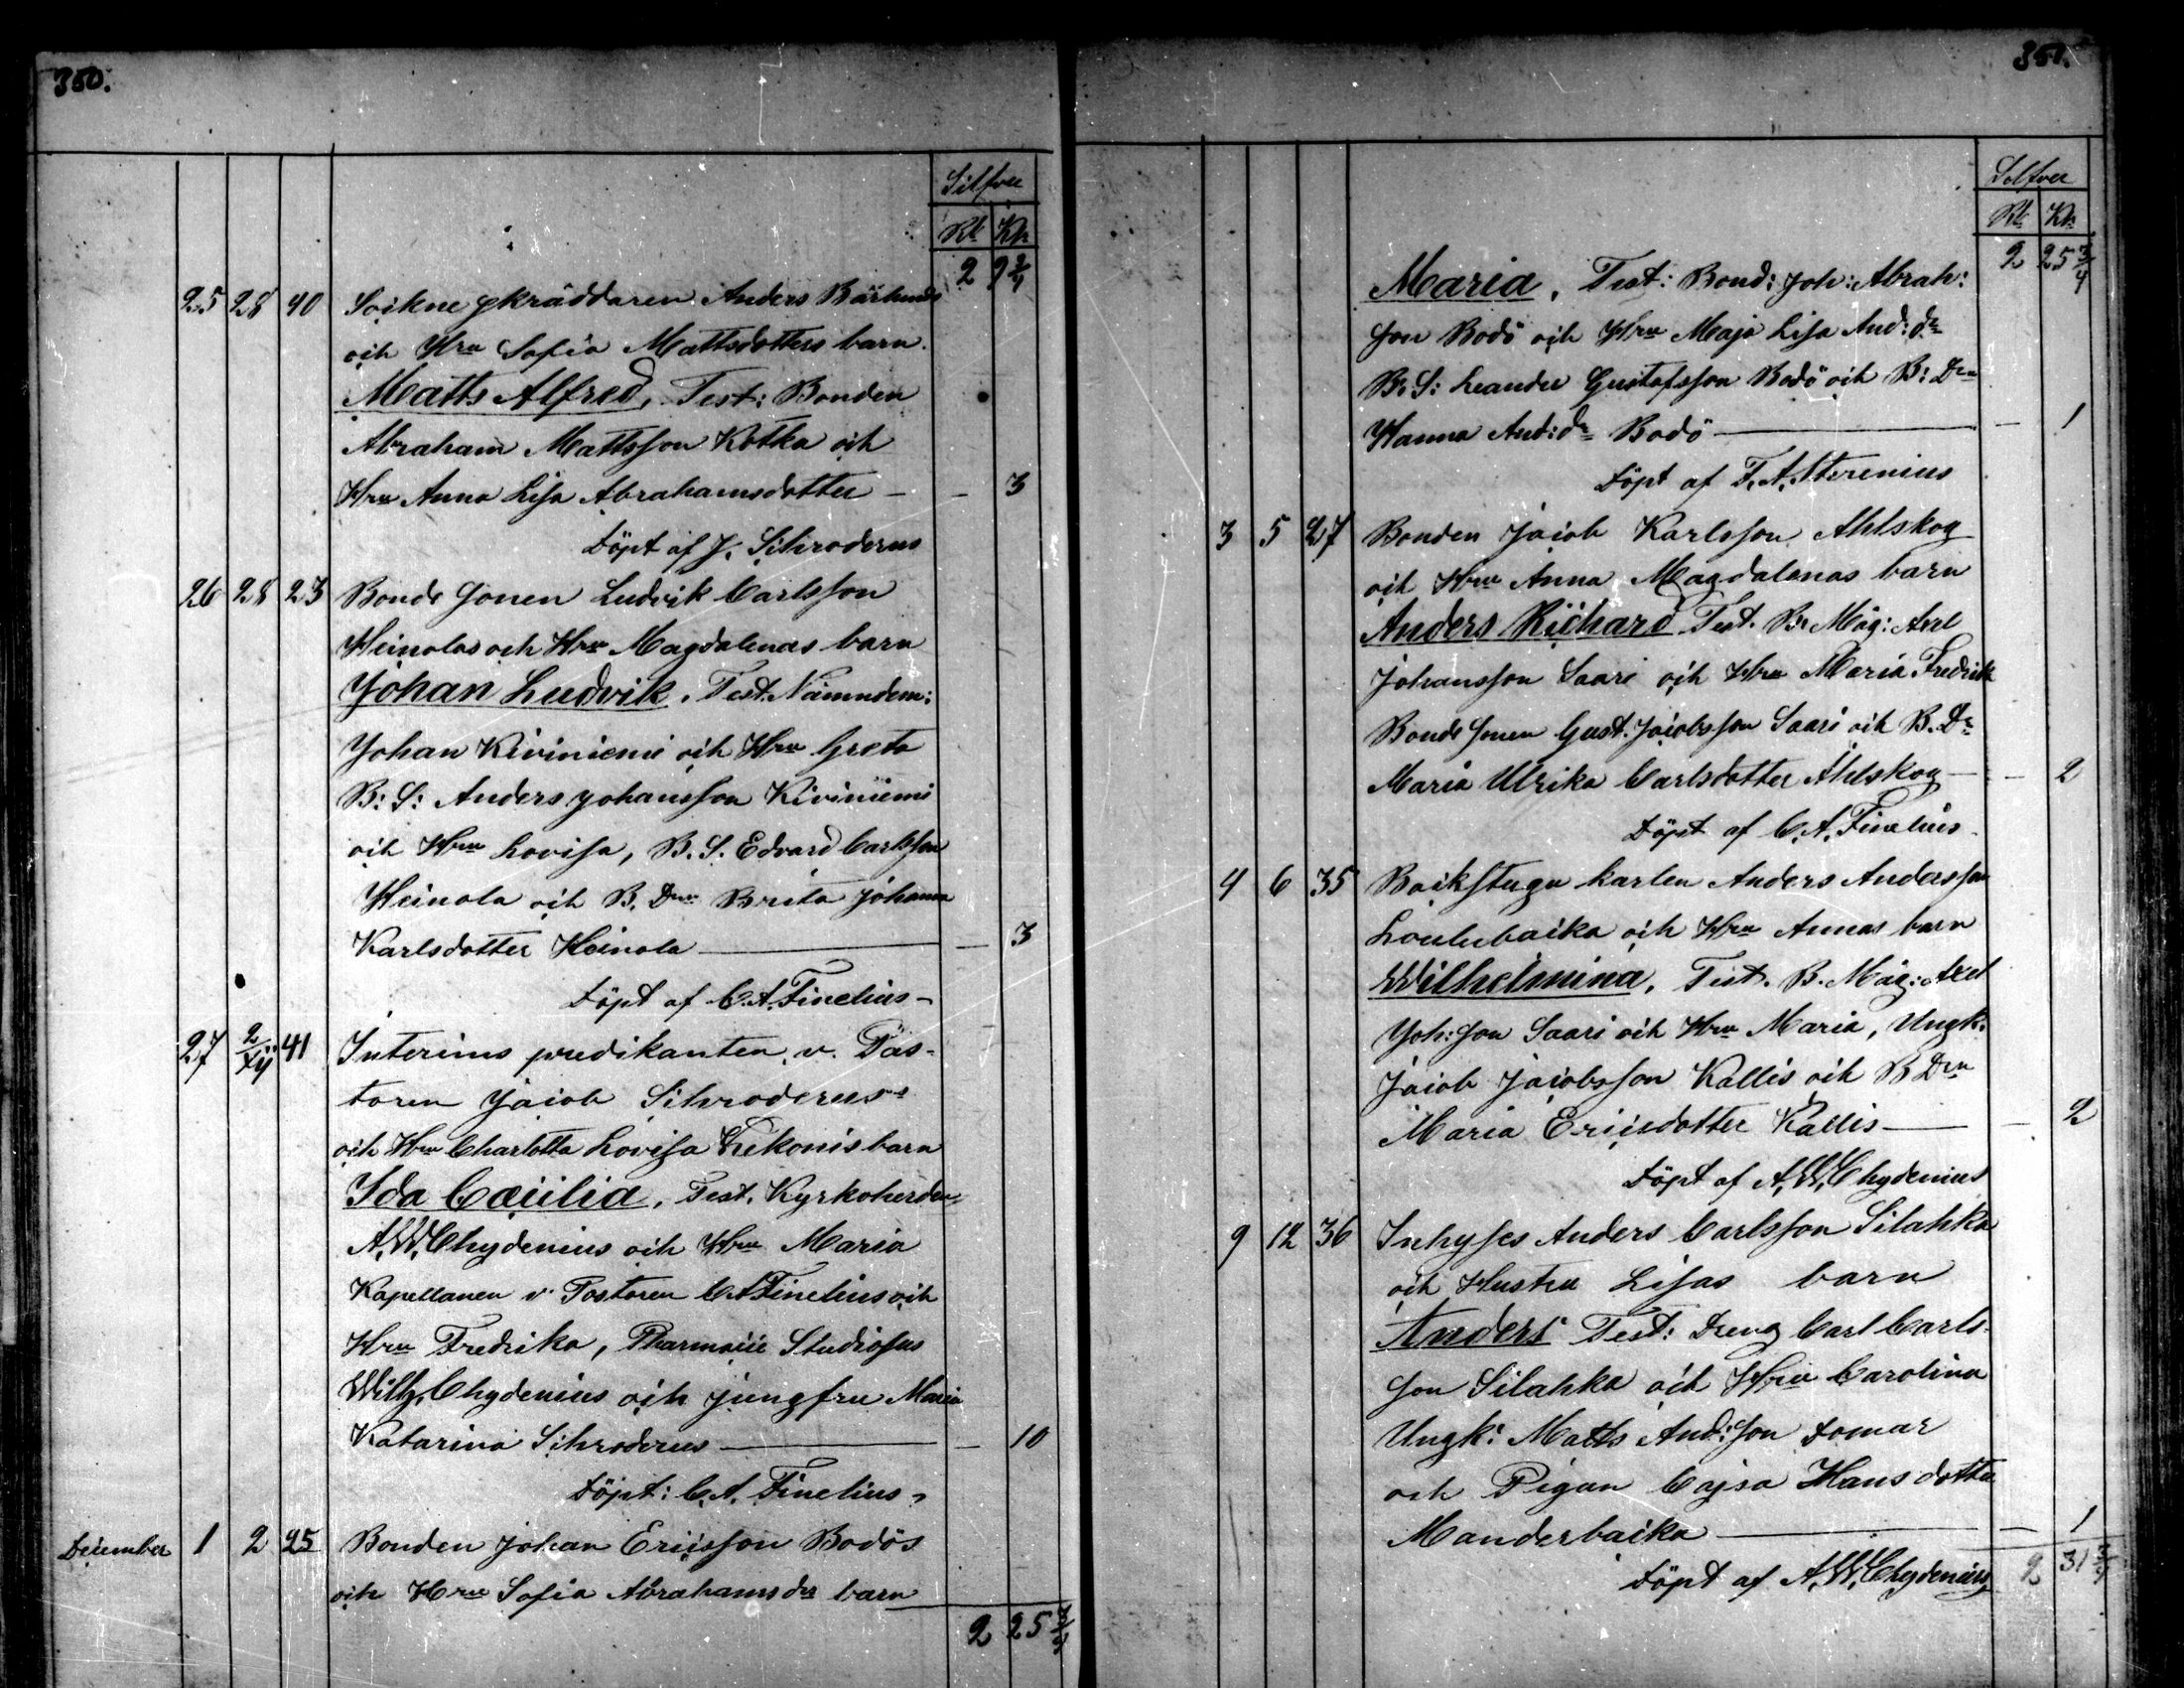 350.
Silfver
Rbl Kp
2 9 3/4
25 28 40 Sockne skräddaren Anders Bärlunds
och Hru Sofia Mattsdotters barn.
Matts Alfred, Test: Bonden
Abraham Mattsson Kotka och
Hru Anna Lisa Abrahamsdotter — — 3
Döpt af J. Schroderus
26 28 23 Bonde Sonen Ludvik Carlsson
Heinolas och Hru Magdalenas barn
Johan Ludvik. Test. Nämndem:
Johan Kiviniemi och Hru Greta
B: S: Anders Johansson Kiviniemi
och Hru Lovisa, B. S. Edvard Carlsson
Heinola och B. Dtr Brita Johanna
Karlsdotter Heinola — — 3
Döpt af C. A. Finelius —
27 2/XII 41 Interims predikanten, v. Pas-
toren Jacob Schroderus's
och Hru Charlotta Lovisa Krekonis barn
Ida Cæcilia. Test. Kyrkoherden
A. W. Chydenius och Hru Maria
Kapellanen v. Pastoren C A Finelius och
Hru Fredrika, Pharmacie Studiosus
Wilh. Chydenius och jungfru Maria
Katarina Schroderus — — 10
Döpt: C. A. Finelius,
December 1 2 25 Bonden Johan Ericsson Bodös
och Hru Sofia Abrahams dr barn
2 25 3/4
351.
Silfver
Rbl Kp
2 25 3/4
Maria, Test: Bond: Joh: Abrah:
son Bodö och Hru Maja Lisa And: dr
B. S: Leander Gustafsson Bodö och B: Drn
Hanna And: dr Bodö — — 1
Döpt af F. A. Sterenius
3 5 27 Bonden Jacob Karlsson Ahlskog
och Hru Anna Magdalenas barn
Anders Richard Test. B. Måg: Axel
Johansson Saari och Hru Maria Fredrik
Bonde Sonen Gust. Jacobsson Saari och B. Dr
Maria Ulrika Carlsdotter Ahlskog — — 2
Döpt af C. A. Finelius.
4 6 35 Backstugu karlen Anders Andersson
Loulubacka och Hru Annas barn
Wilhelmina, Test. B. Måg: Axel
Joh: son Saari och Hru Maria, Ungk.
Jacob Jacobsson Kallis och B Drn
Maria Ericsdotter Kallis — — 2
Döpt af A. W. Chydenius
9 12 36 Inhyses Anders Carlsson Silahka
och Hustru Lisas barn
Anders Test: Dreng Carl Carls-
son Silahka och Hru Carolina
Ungk: Matts And: son Domar
och Pigan Cajsa Hans dotter
Manderbacka — — 1
Döpt af A. W. Chydenius 2 31 3/4